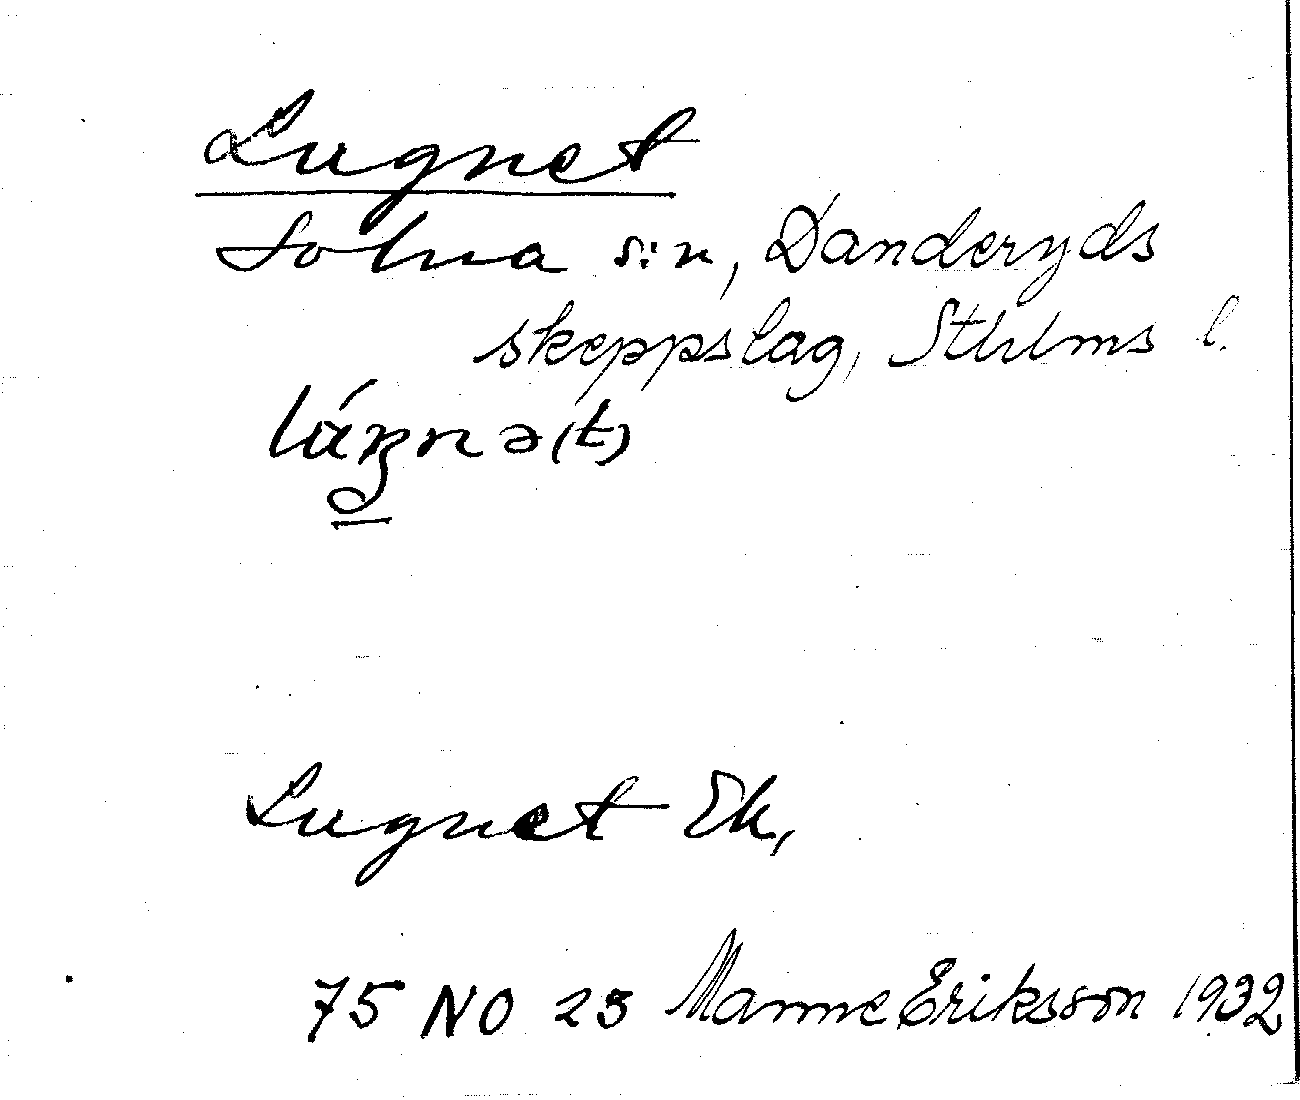 Lugnet
Solna s:n, Danderyds
skeppslag, Sthlms l.
Lugnet Ek,
75 NO 23 Manne Eriksson 1932